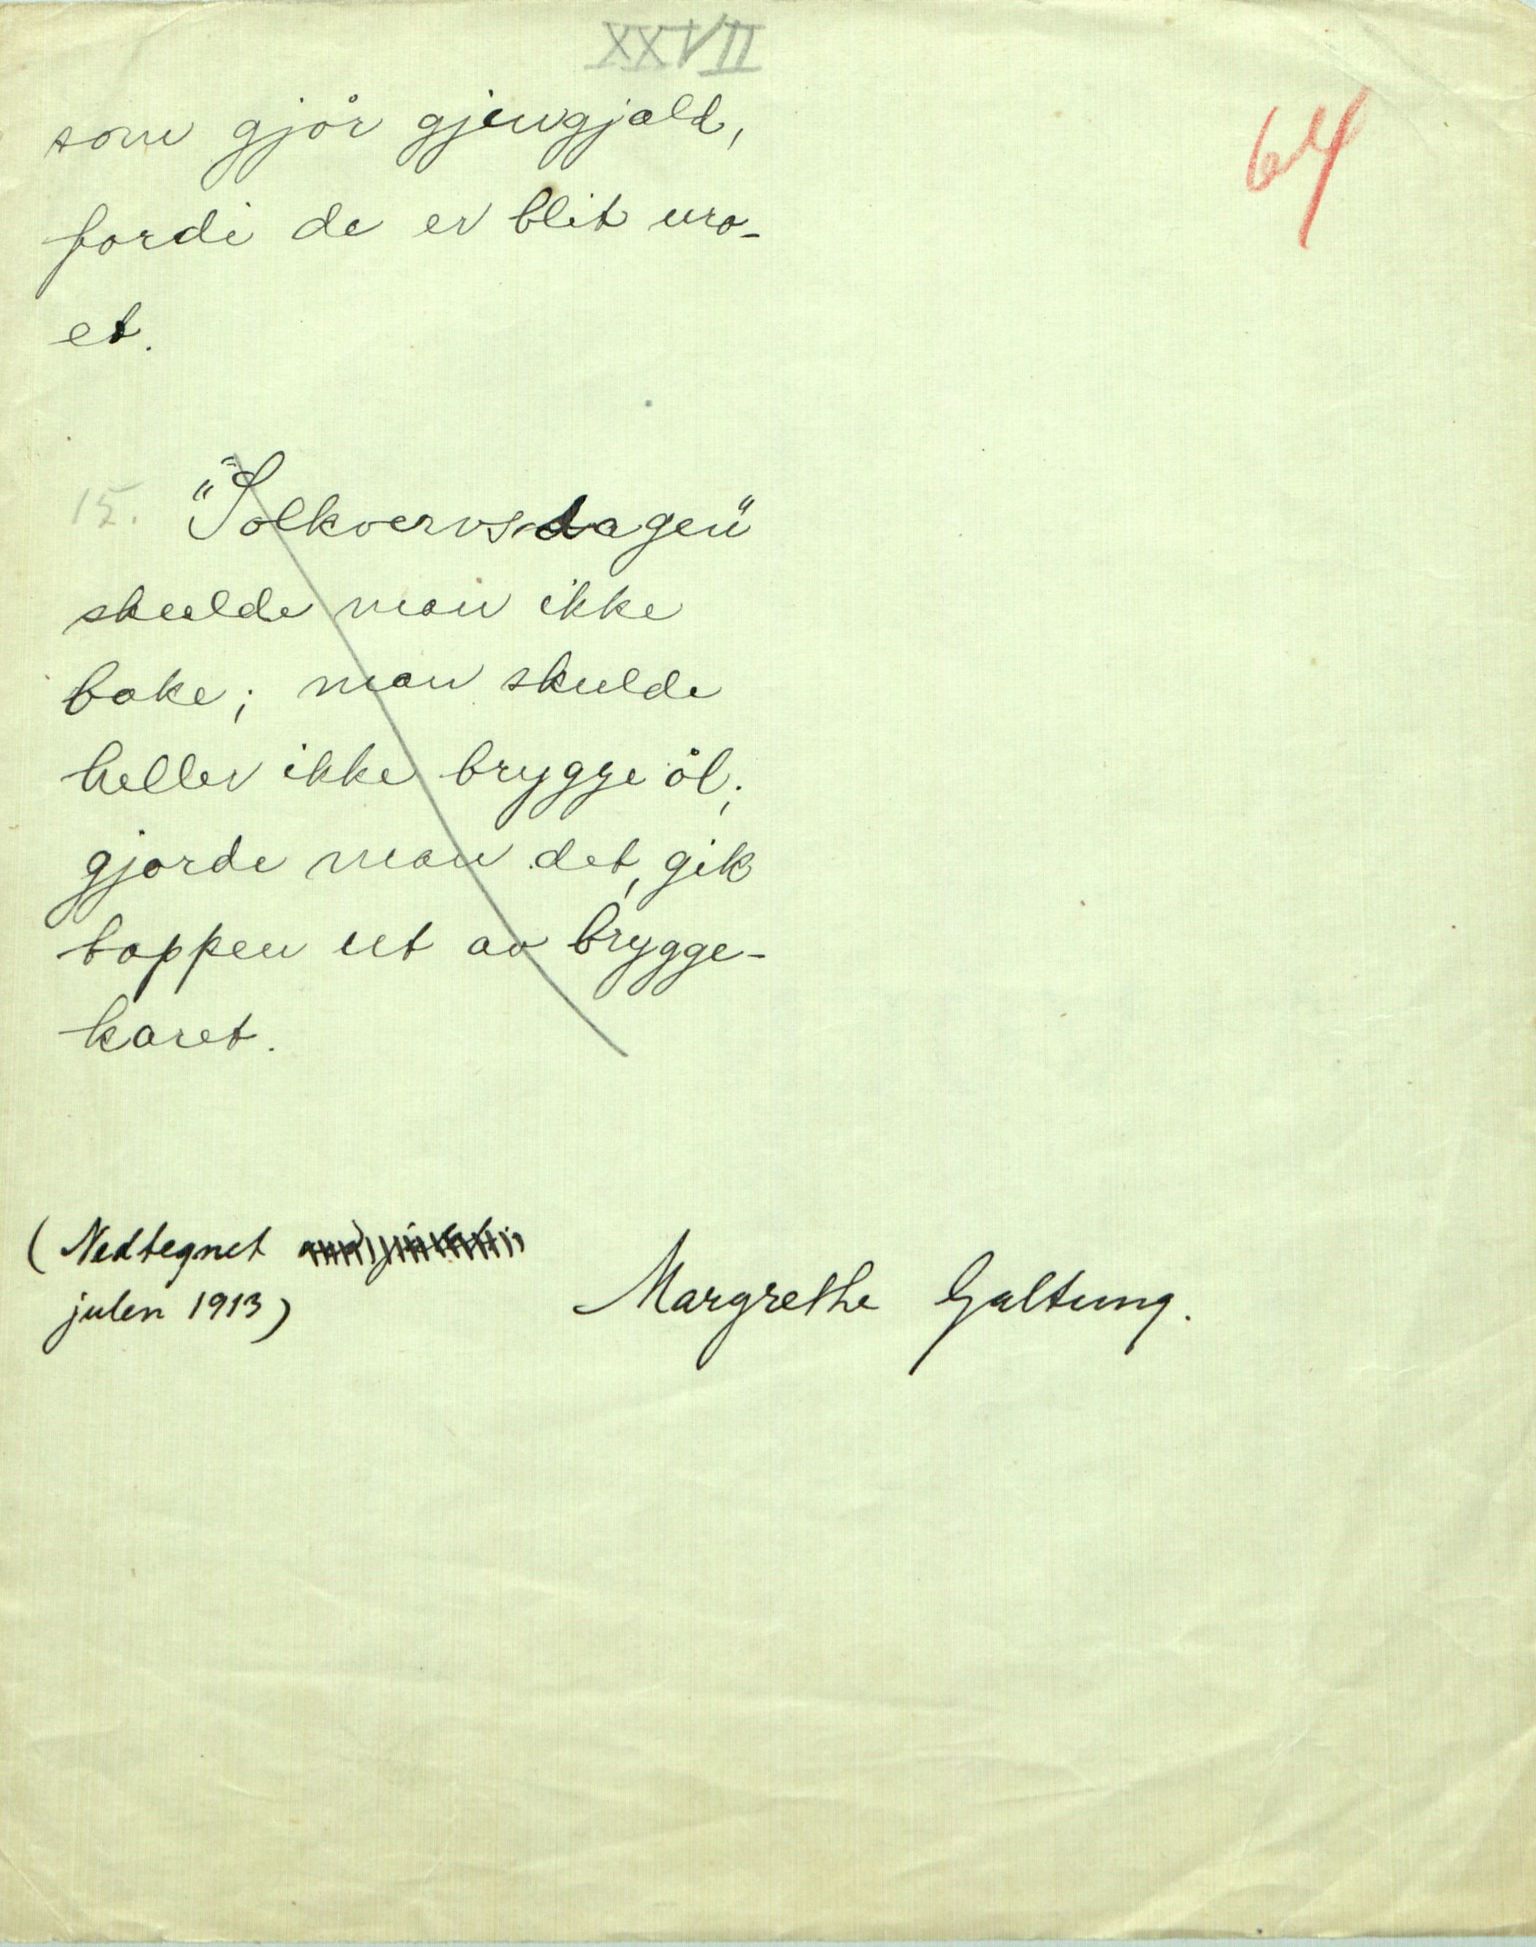 XXVII
64
som gjør gjengjæld,
fordi de er blit uro-
et.
15. "Solkvervsdagen"
skulde man ikke
bake; man skulde
heller ikke brygge øl;
gjorde man det, gik
tappen ut av brygge-
karet.
(Nedtegnet
julen 1913)
Margrethe Galtung.